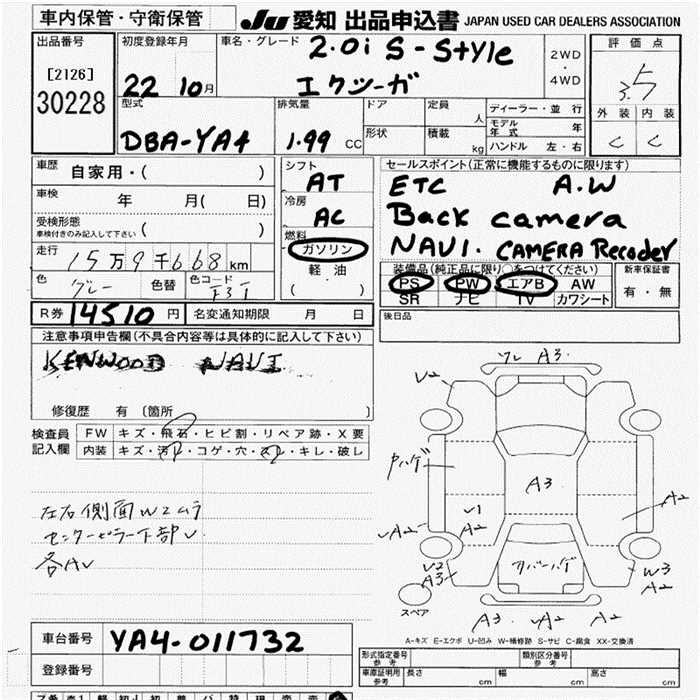 車内保管・守衛保管
JU 愛知 出品申込書 JAPAN USED CAR DEALERS ASSOCIATION
出品番号
[2126]
30228
初度登録年月
22 10月
車名・グレード 2.0i S-Style
エクシーガ
2WD
・
4WD
評価点
3.5
外装 内装
C C
型式
DBA-YA4
排気量
1.99 CC
ドア
形状
定員
人
積載
kg
ディーラー・並行
モデル年式 年
ハンドル 左・右
車歴 自家用・( )
車検 年 月( 日)
受検形態
車検付きのみ記入して下さい ( )
走行 15万9千668km
色 グレー 色替 色コード
シフト
AT
冷房
AC
燃料
ガソリン
軽油
( )
セールスポイント(正常に機能するものに限ります)
ETC A.W
Back camera
NAVI. CAMERA Recoder
装備品(純正品に限り○をつけてください)
PS PW エアB AW
SR ナビ TV カワシート
新車保証書
有・無
R券 14510円 名変通知期限 月 日
後日品
注意事項申告欄(不具合内容等は具体的に記入して下さい)
KENWOOD NAVI
修復歴 有 (箇所 )
検査員
記入欄
FW キズ・飛石・ヒビ割・リペア跡・X要
内装 キズ・汚れ・コゲ・穴・スレ・キレ・破レ
左右側面W2ムラ
センターピラー下部U
各AU
ワレ A3
U2
ハゲ
A3
U1
A2
UA2
A2
U2
A3
カバーハゲ
W3
A2
スペア
A3 UA2 A2
A-キズ E-エクボ U-凹み W-補修跡 S-サビ C-腐食 XX-交換済
車台番号 YA4-011732
登録番号
形式指定番号
参考
類別区分番号
参考
車庫証明用
参考
長さ cm 幅 cm 高さ cm